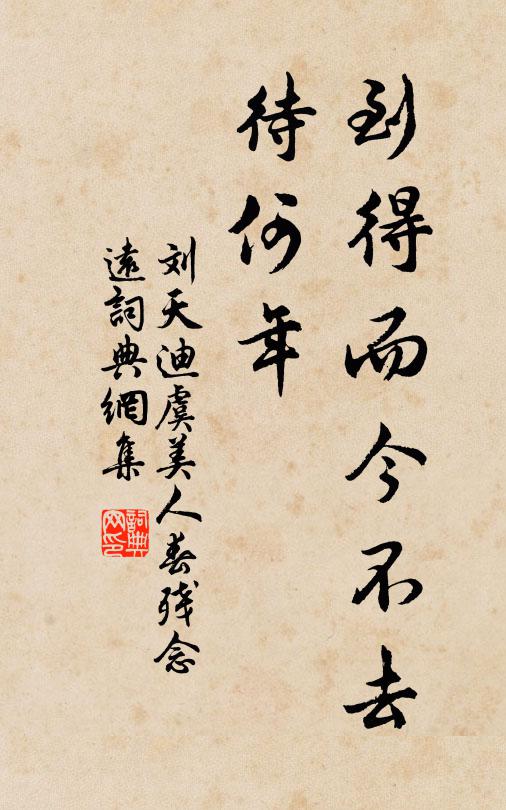 到得而今不去
待何年
刘天迪虞美人春残念
遠詞典網集
詞典
网印